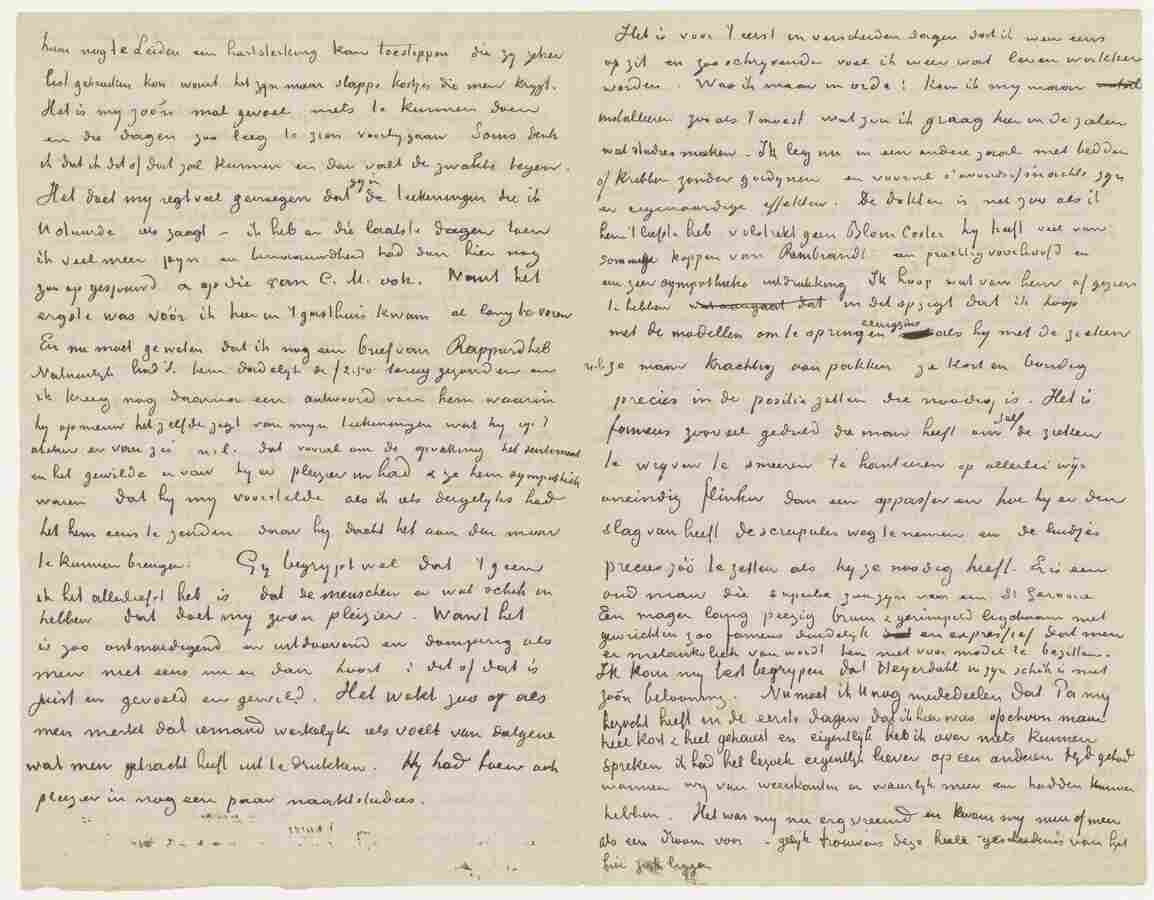 haar nog te Leiden een hartsterking kan toestoppen die zij zeker
best gebruiken kan want het zijn maar slappe kostjes die men krijgt.
Het is mij zóó'n mal gevoel niets te kunnen doen
en die dagen zoo leeg te zien voorbijgaan Soms denk
ik dat ik dit of dat zal kunnen en dan valt de zwakte tegen.
Het doet mij regt veel genoegen dat zijn de teekeningen die ik
U stuurde iets zaagt – ik heb er die laatste dagen toen
ik veel meer pijn en benaauwdheid had dan hier nog
zoo op gespuurd & op die van C. M. ook. Want het
ergste was vóór ik hier in 't gasthuis kwam al lang te voren
En nu moet ge weten dat ik nog een brief van Rappard heb
Natuurlijk had ik hem dadelijk de ƒ 2.50 terug gezonden en
ik kreeg nog daarna een antwoord van hem waarin
hij opnieuw hetzelfde zegt van mijn teekeningen wat hij
van zei n.l. dat vooral om de opvatting het sentiment
en het gewilde er van hij er pleizier in had & ze hem sympathiek
waren dat hij mij voorstelde als ik iets dergelijks had
het hem eens te zenden daar hij dacht het aan den man
te kunnen brengen. Gij begrijpt wel dat 't geen
ik het allerliefst heb is dat de menschen er wat schik in
hebben dat doet mij zoo'n pleizier. Want het
is zoo ontmoedigend en uitdoovend en dompend als
men niet eens nu en dan hoort: dit of dat is
juist en gevoeld en gewild. Het wekt zoo op als
men merkt dat iemand werkelijk iets voelt van datgene
wat men getracht heeft uit te drukken. Hij had toen ook
pleizier in nog een paar naaktstudies.
Het is voor 't eerst in verscheiden dagen dat ik weer eens
op zit en zoo schrijvende voel ik weer wat leven wakker
worden. Was ik maar in orde! Kon ik mij maar
installeeren zoo als 't moest wat zou ik graag hier in de zalen
wat studies maken. Ik leg nu in een andere zaal met bedden
of kribben zonder gordijnen en vooral 's avonds of 's nachts zijn
er eigenaardige effekten. De dokter is net zoo als ik
hem 't liefste heb volstrekt geen Blom Coster hij heeft veel van
sommige koppen van Rembrandt een prachtig voorhoofd en
een zeer sympathieke uitdrukking Ik hoop wat van hem afgezien
te hebben in dit opzigt dat ik hoop
met de modellen om te springen eenigszins als hij met de zieken
n.l. ze maar krachtig aanpakken ze kort en bondig
precies in de positie zetten die noodig is. Het is
fameus zooveel geduld die man heeft om zelf de zieken
te wrijven te smeeren te hanteeren op allerlei wijs
oneindig flinker dan een oppasser en hoe hij er den
slag van heeft de scrupules weg te nemen en de luidjes
precies zóó te zetten als hij ze noodig heeft. Er is een
oud man die superbe zou zijn voor een St Jerome
Een mager lang pezig bruin & gerimpeld ligchaam met
gewrichten zoo fameus duidelijk en expressief dat men
er melankoliek van wordt hem niet voor model te bezitten.
Ik kan mij best begrijpen dat Heyerdahl in zijn schik is met
zóó'n belooning. Nu moet ik U nog mededeelen dat Pa mij
bezocht heeft in de eerste dagen dat ik hier was ofschoon maar
heel kort & heel gehaast en eigentlijk heb ik over niets kunnen
spreken ik had het bezoek eigentlijk liever op een anderen tijd gehad
wanneer wij van weerskanten er waarlijk meer aan hadden kunnen
hebben. Het was mij nu erg vreemd en kwam mij min of meer
als een droom voor – gelijk trouwens deze heele geschiedenis van het
hier liggen